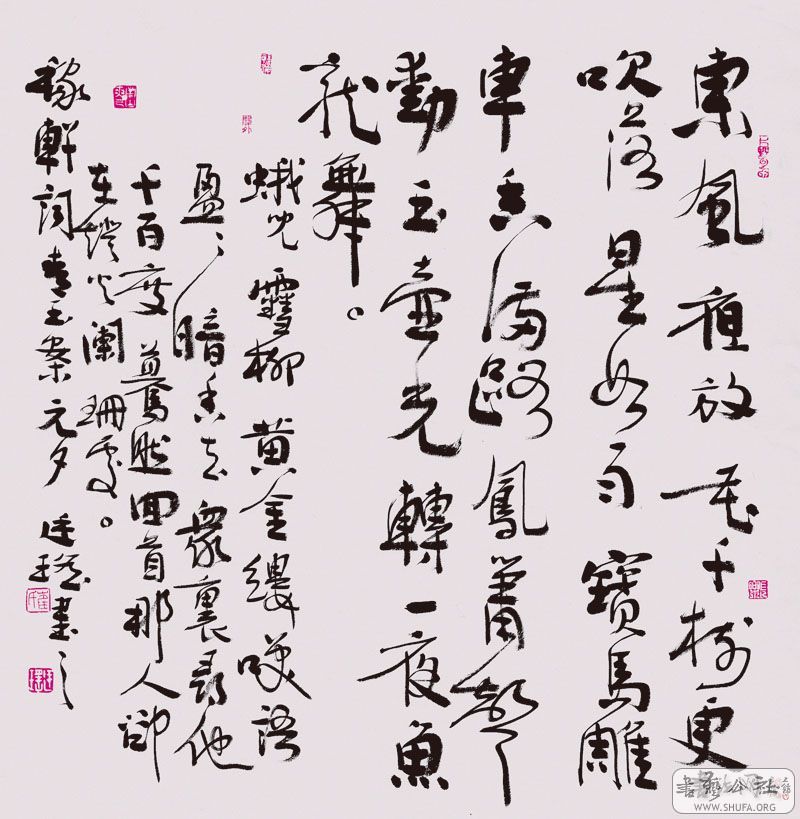 東風夜放花千樹更
吹落星如雨寶馬雕
車香滿路鳳簫聲
動玉壺光轉一夜魚
龍舞。
蛾兒雪柳黃金縷咲語
盈〻暗香去衆裏尋他
千百度驀然回首那人卻
在燈火闌珊處。
稼軒詞青玉案元夕 書之
書藝公社
WWW.SHUFA.ORG